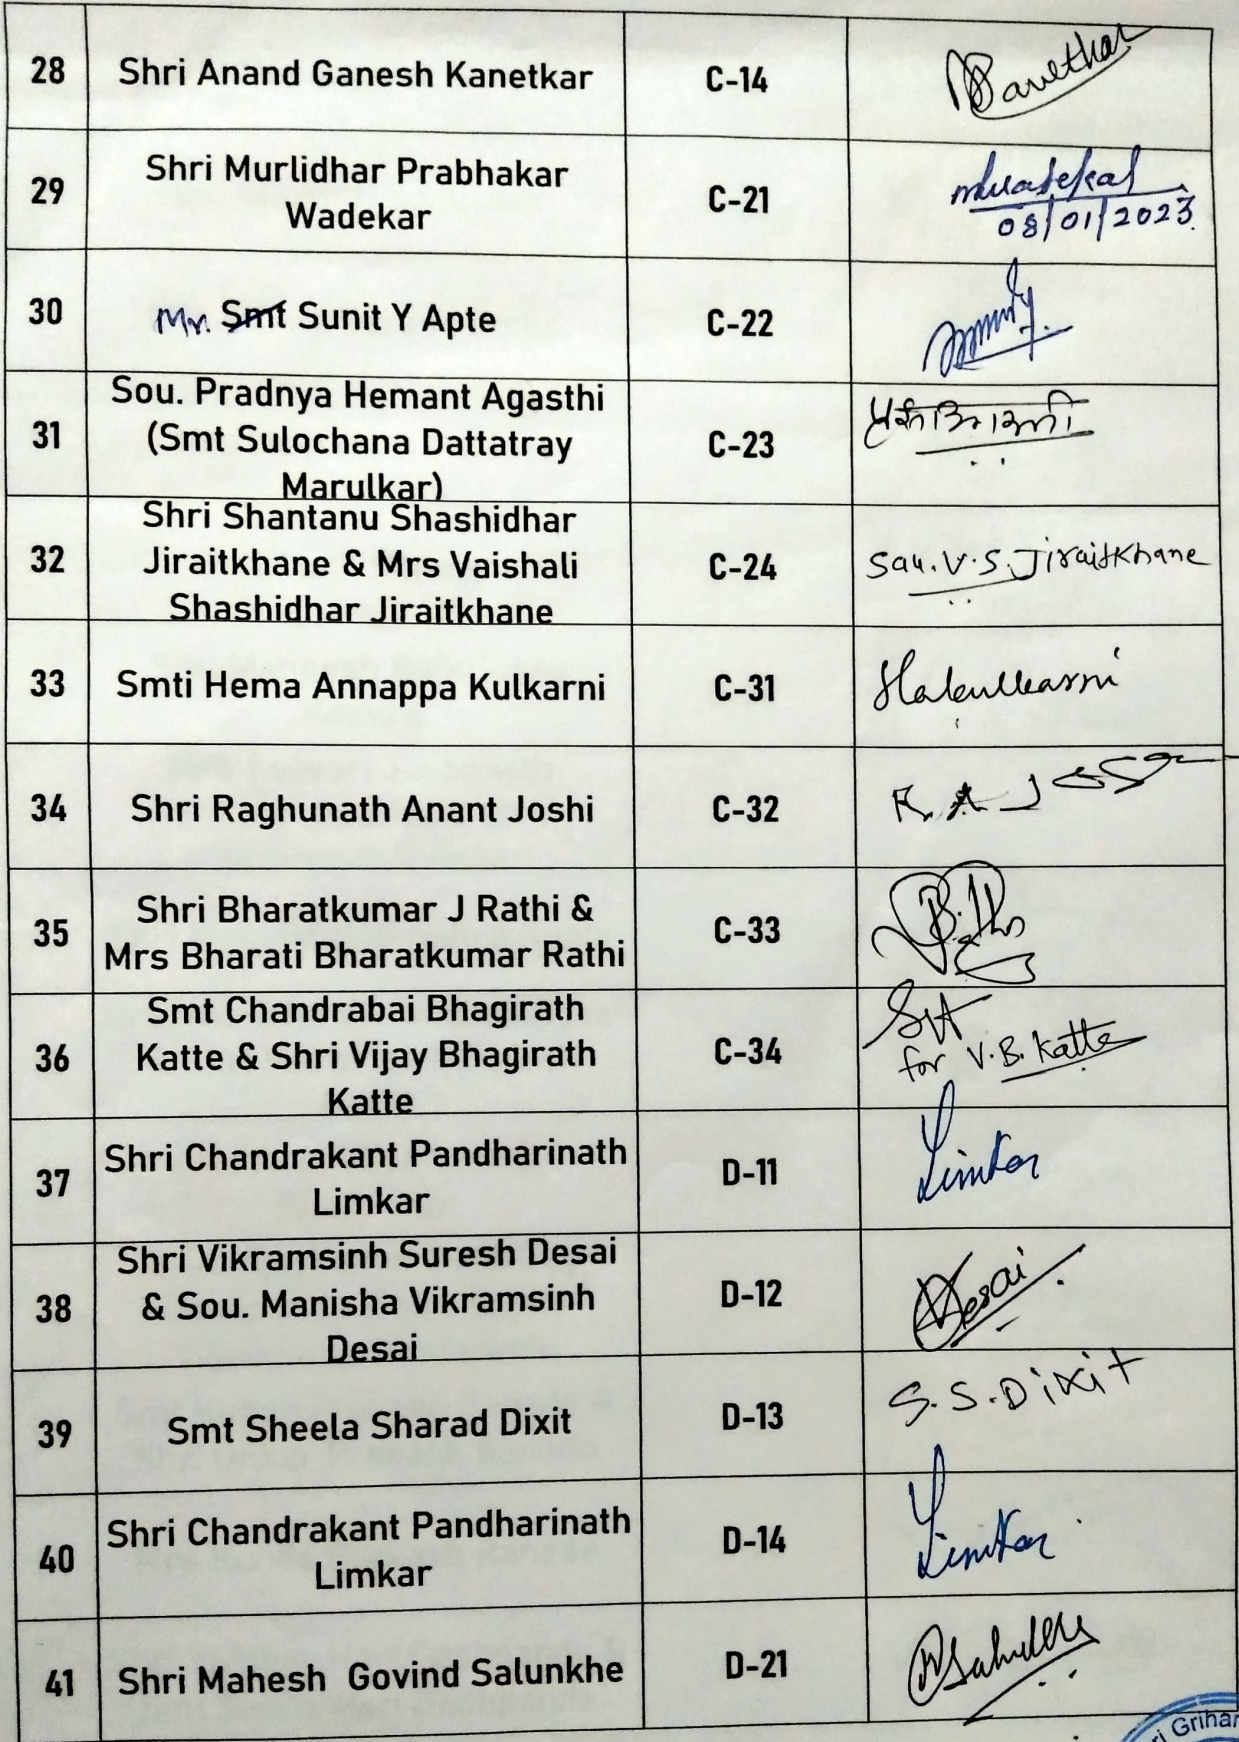 28 Shri Anand Ganesh Kanetkar C-14
29 Shri Murlidhar Prabhakar
Wadekar C-21
08/01/2023
30 Mr. Smt Sunit Y Apte C-22
31 Sou. Pradnya Hemant Agasthi
(Smt Sulochana Dattatray
Marulkar) C-23
32 Shri Shantanu Shashidhar
Jiraitkhane & Mrs Vaishali
Shashidhar Jiraitkhane C-24 Sau. V. S. Jiraitkhane
33 Smti Hema Annappa Kulkarni C-31
34 Shri Raghunath Anant Joshi C-32
35 Shri Bharatkumar J Rathi &
Mrs Bharati Bharatkumar Rathi C-33
36 Smt Chandrabai Bhagirath
Katte & Shri Vijay Bhagirath
Katte C-34
for V. B. Katte
37 Shri Chandrakant Pandharinath
Limkar D-11 Limkar
38 Shri Vikramsinh Suresh Desai
& Sou. Manisha Vikramsinh
Desai D-12 Desai
39 Smt Sheela Sharad Dixit D-13 S. S. Dixit
40 Shri Chandrakant Pandharinath
Limkar D-14 Limkar
41 Shri Mahesh Govind Salunkhe D-21